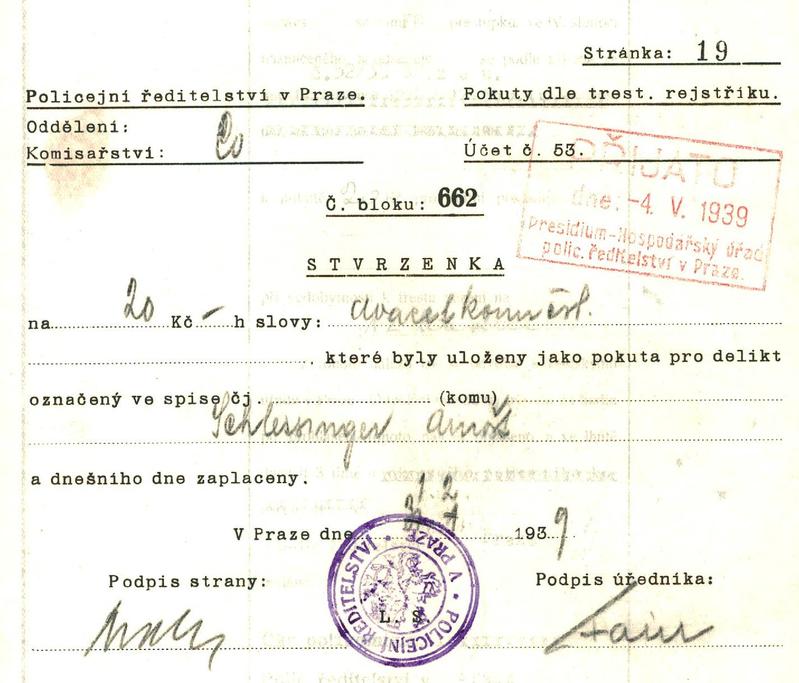 Stránka: 19
Policejní ředitelství v Praze.
Pokuty dle trest. rejstříku.
Oddělení:
Komisařství: 20
Účet č. 53.
PŘIJATO
dne: -4. V. 1939
Presidium-Hospodářský úřad
polic. ředitelství v Praze.
Č. bloku: 662
STVRZENKA
na 20 Kč - h slovy: dvacet korun
, které byly uloženy jako pokuta pro delikt
označený ve spise čj. (komu)
Schlessinger Arnošt
a dnešního dne zaplaceny.
V Praze dne 1939
Podpis strany:
Podpis úředníka:
POLICEJNÍ ŘEDITELSTVÍ V PRAZE
L. S.